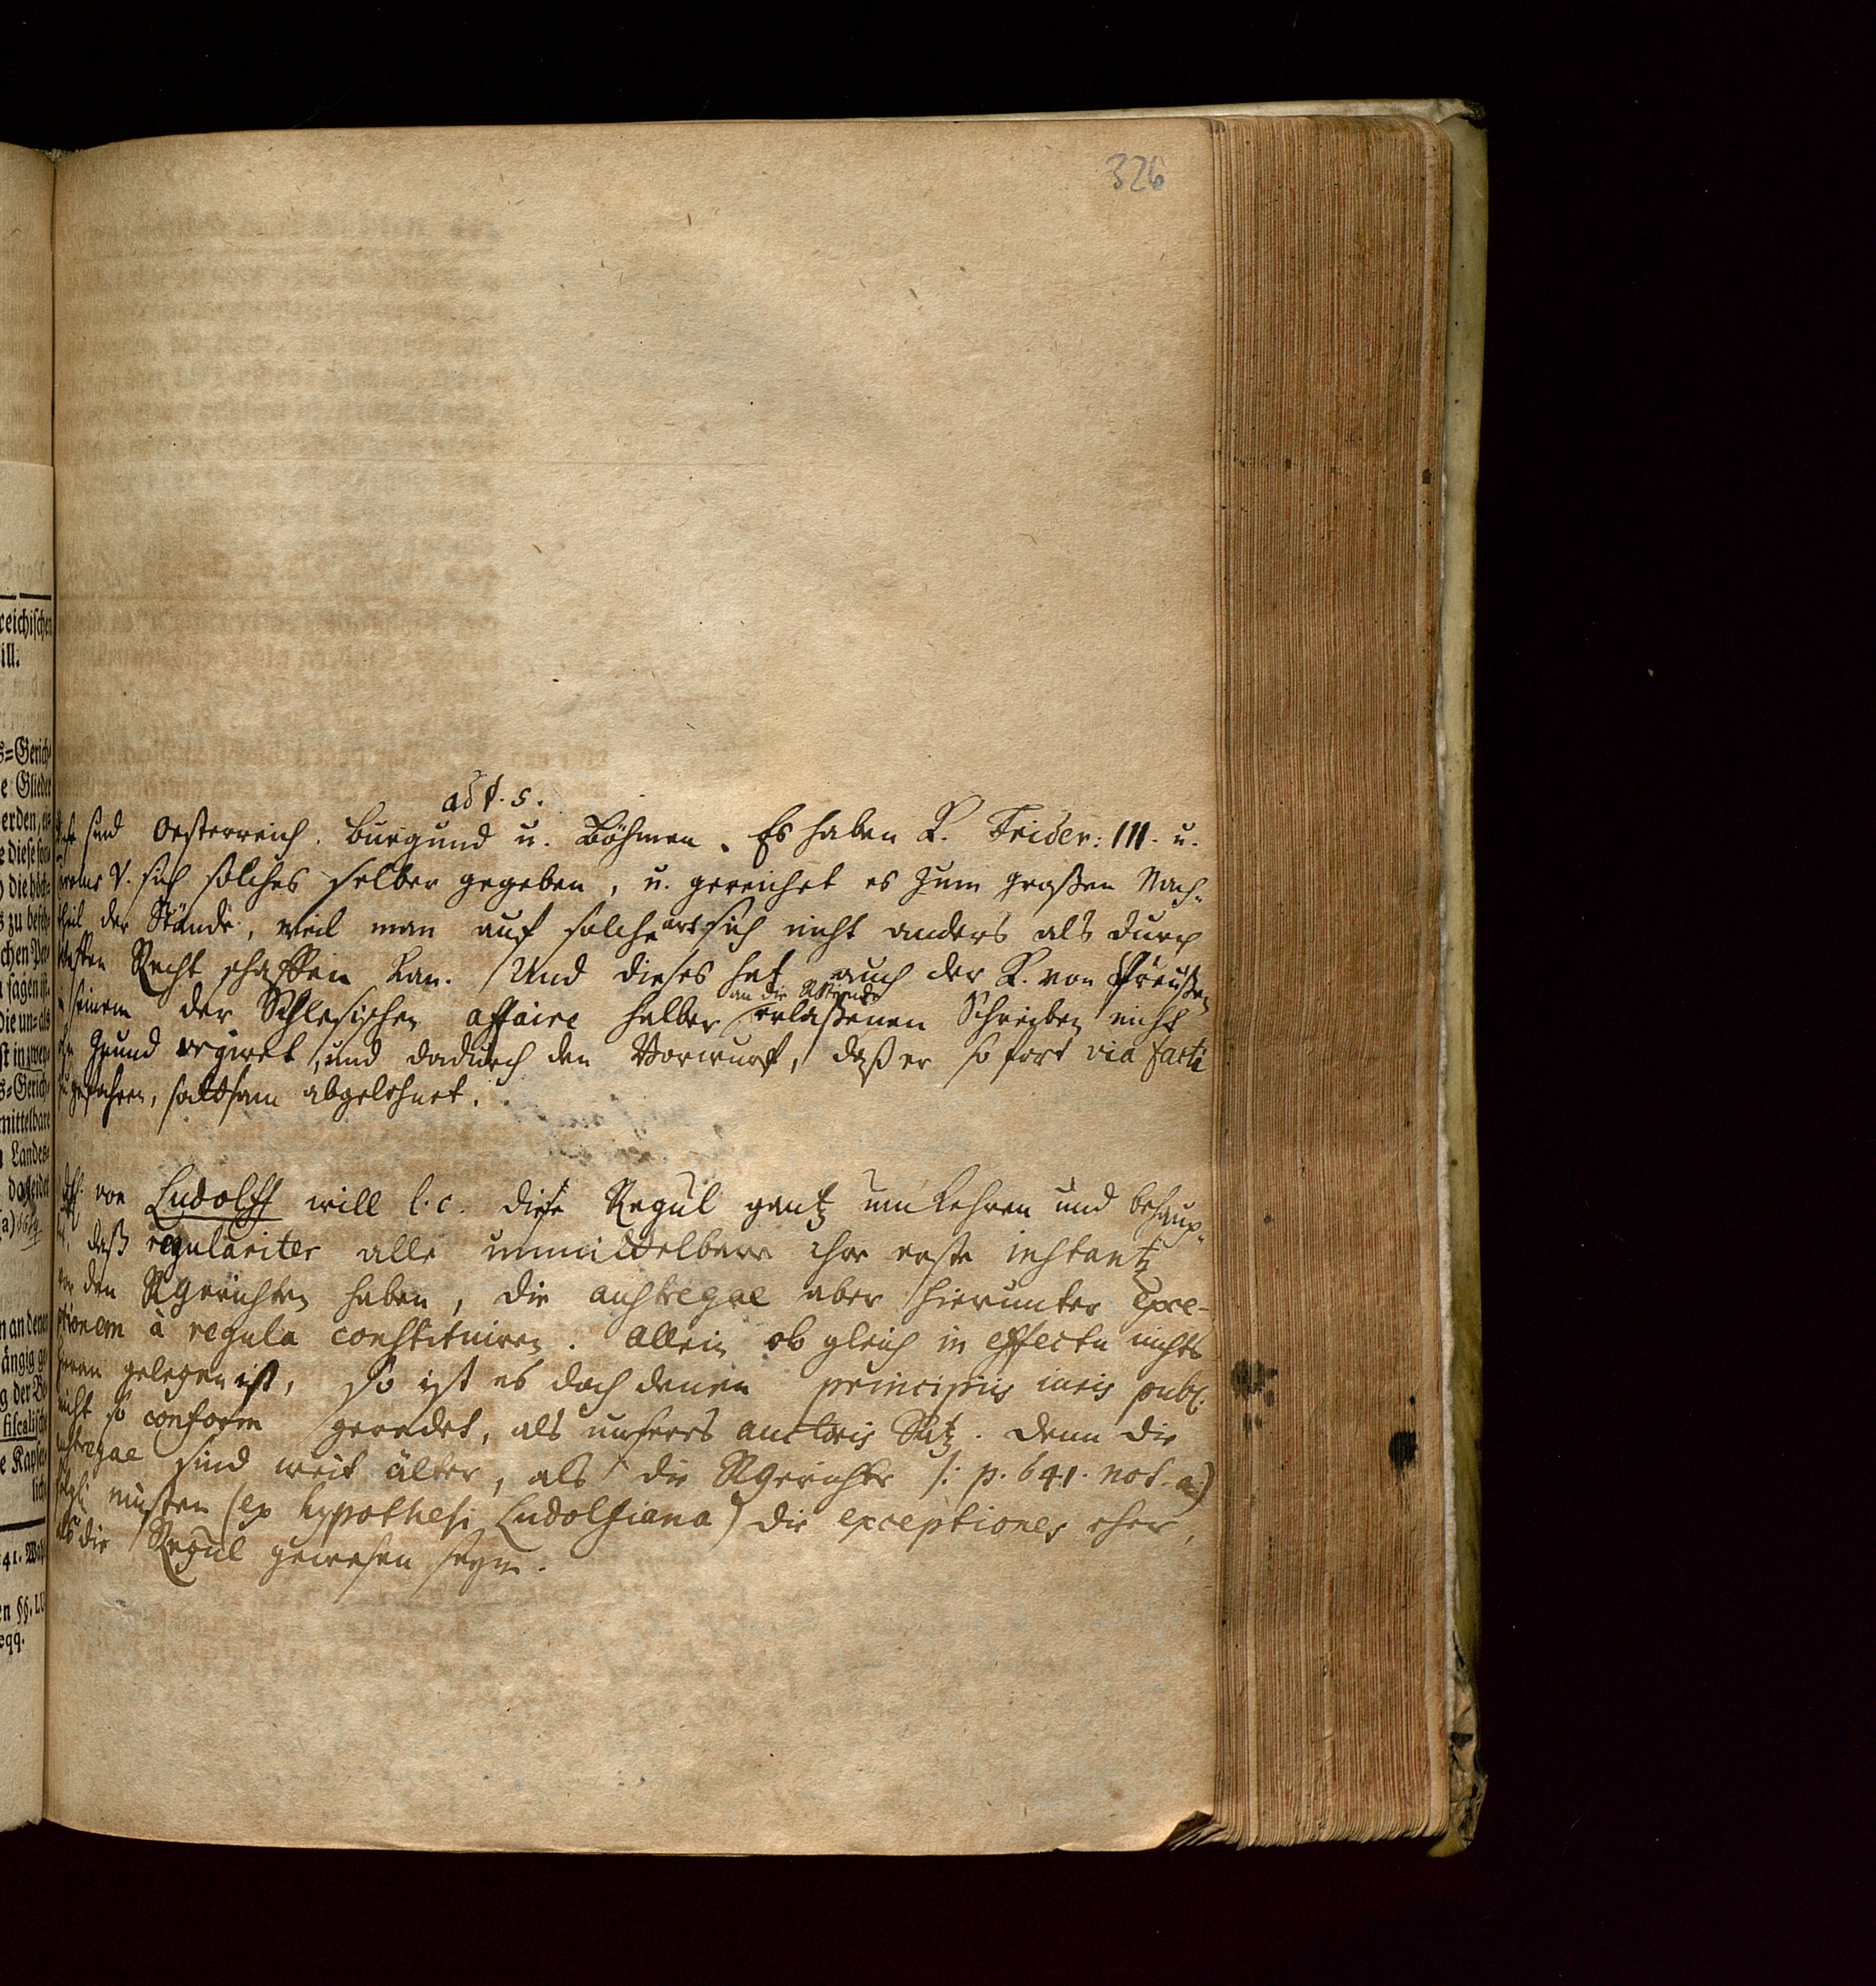 326
ad §. 5.
sind Oesterreich. Burgund u. Böhmen. Es haben K. Frider: III. u.
V. sich solches selber gegeben, u. gereichet es zum großen Nach-
theil der Stände, weil man auf solche art sich nicht anders als durch
Waffen Recht schaffen kan. Und dieses hat auch der K. von Preußen
an die RStände
in seinem der Schlesischen affaire halber erlaßenen Schreiben nicht
ohn Grund urgiret, und dadurch den Vorwurf, daß er so fort via facti
zugefahren, sattsam abgelehnet.
von Ludolff will l. c. diese Regul gantz umkehren und behaup-
daß regulariter alle unmittelbare ihre erste instantz
vor den RGerichten haben, die austregae aber hierunter exce-
ptionem à regula constituiren. Allein ob gleich in effectu nichts
hieran gelegen ist, so ist es doch denen principiis iuris publ.
nicht so conform geredet, als unsers auctoris Satz. Denn die
austregae sind weit älter, als die RGerichte /: p. 641. not. a:/
müsten (ex hypothesi Ludolfiana) die exceptiones eher,
als die Regul gewesen seyn.
reichischen
ill.
s=Gerich-
e Glieder
erden,
e diese
die höch-
zu
schen Per-
sagen ist.
die un=
st in
s=Gerich-
mittelbare
Landes-
(a)
n an denen
ängig ge-
g der
fiscalische
e Kayser-
lich
41.
en §§. LV
eqq.